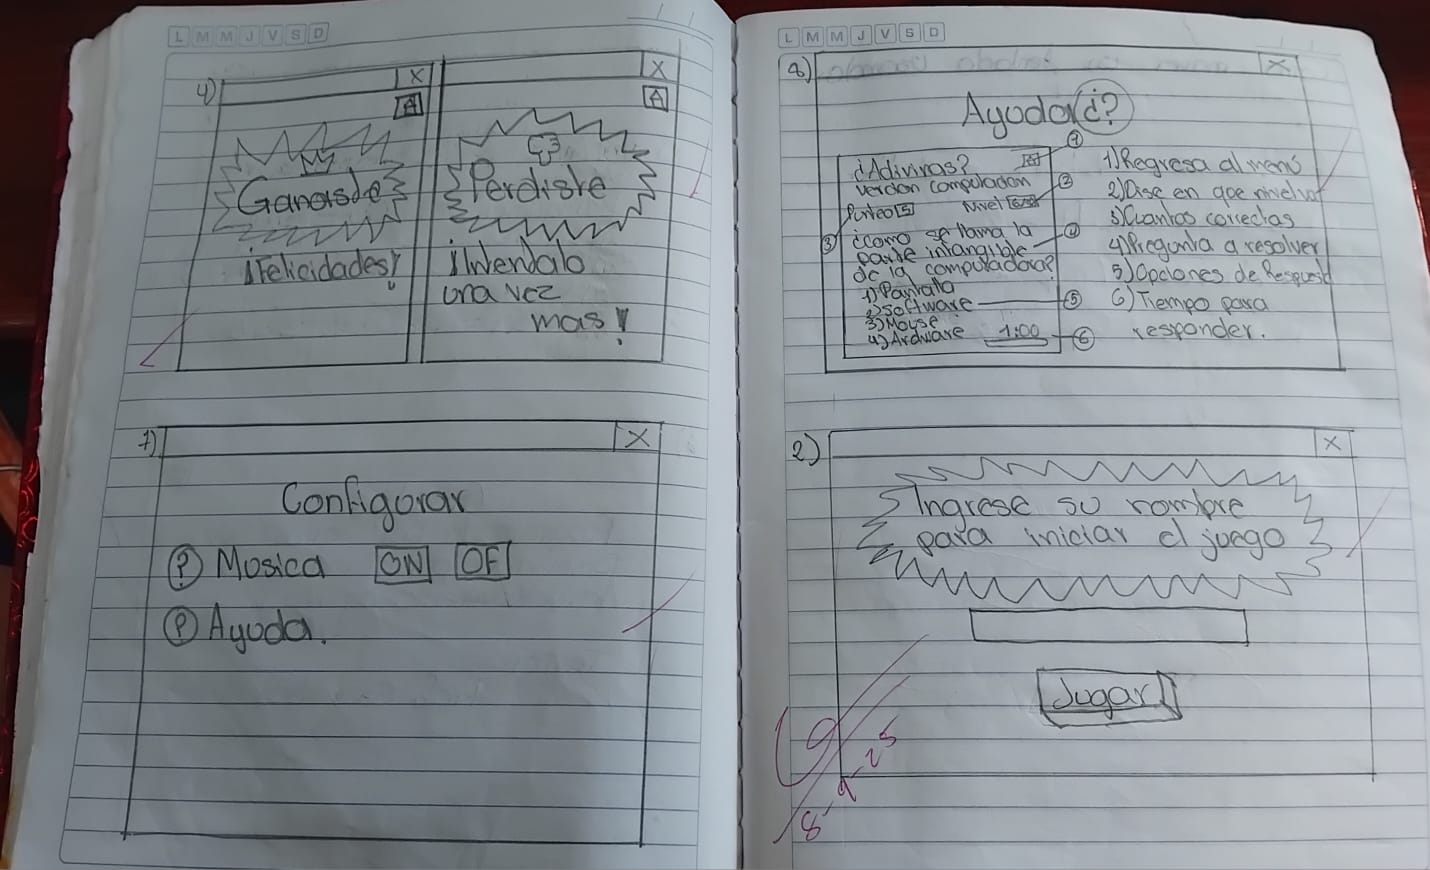 L M M J V S D
4)
X
X
A
A
Ganaste
¡Felicidades!
Perdiste
¡Intentalo
una vez
mas!
7)
X
Configurar
? Musica ON OF
? Ayuda.
L M M J V S D
8)
X
Ayuda ¿?
¿Adivinas?
version computadora
Punteo 5 Nivel
¿como se llama la
parte intangible
de la computadora?
1) Pantalla
2) Software
3) Mouse
4) Ardware 1:00
1
2
3
4
5
6
1) Regresa al menú
2) Dise en que nivel va
3) Cuantas correctas
4) Pregunta a resolver
5) Opciones de Respuest
6) Tiempo para
responder.
2)
X
Ingrese su nombre
para iniciar el juego
Jugar
9-25
8